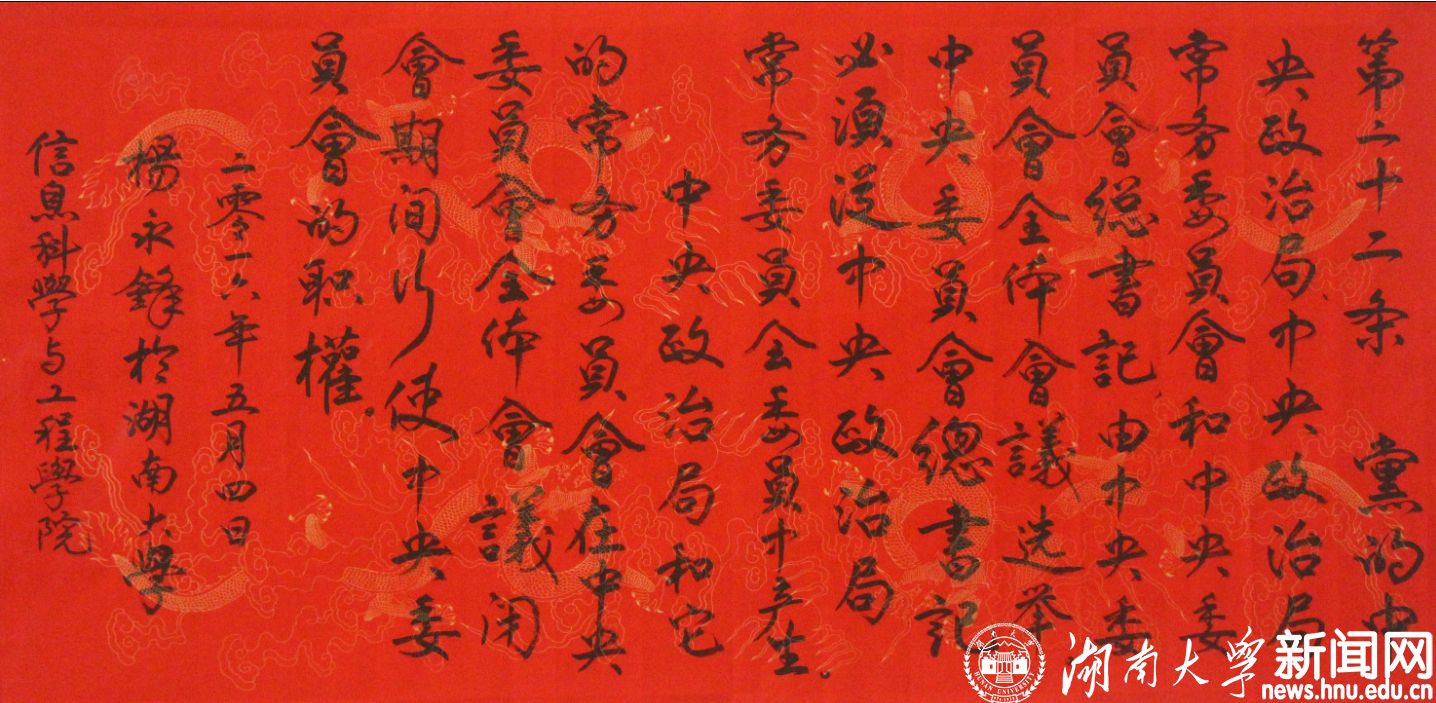 第二十二条 黨的中
央政治局、中央政治局
常务委員會和中央委
員會總書記,由中央委
員會全体會議选举
中央委員會總書記
必须從中央政治局
常务委員会委員中产生。
中央政治局和它
的常务委員會在中央
委員會全体會議闭
會期间行使中央委
員會的职權。
二零一六年五月四日
楊永鋒於湖南大學
信息科學与工程學院
湖南大學
HUNAN UNIVERSITY
湖南大学新闻网
news.hnu.edu.cn